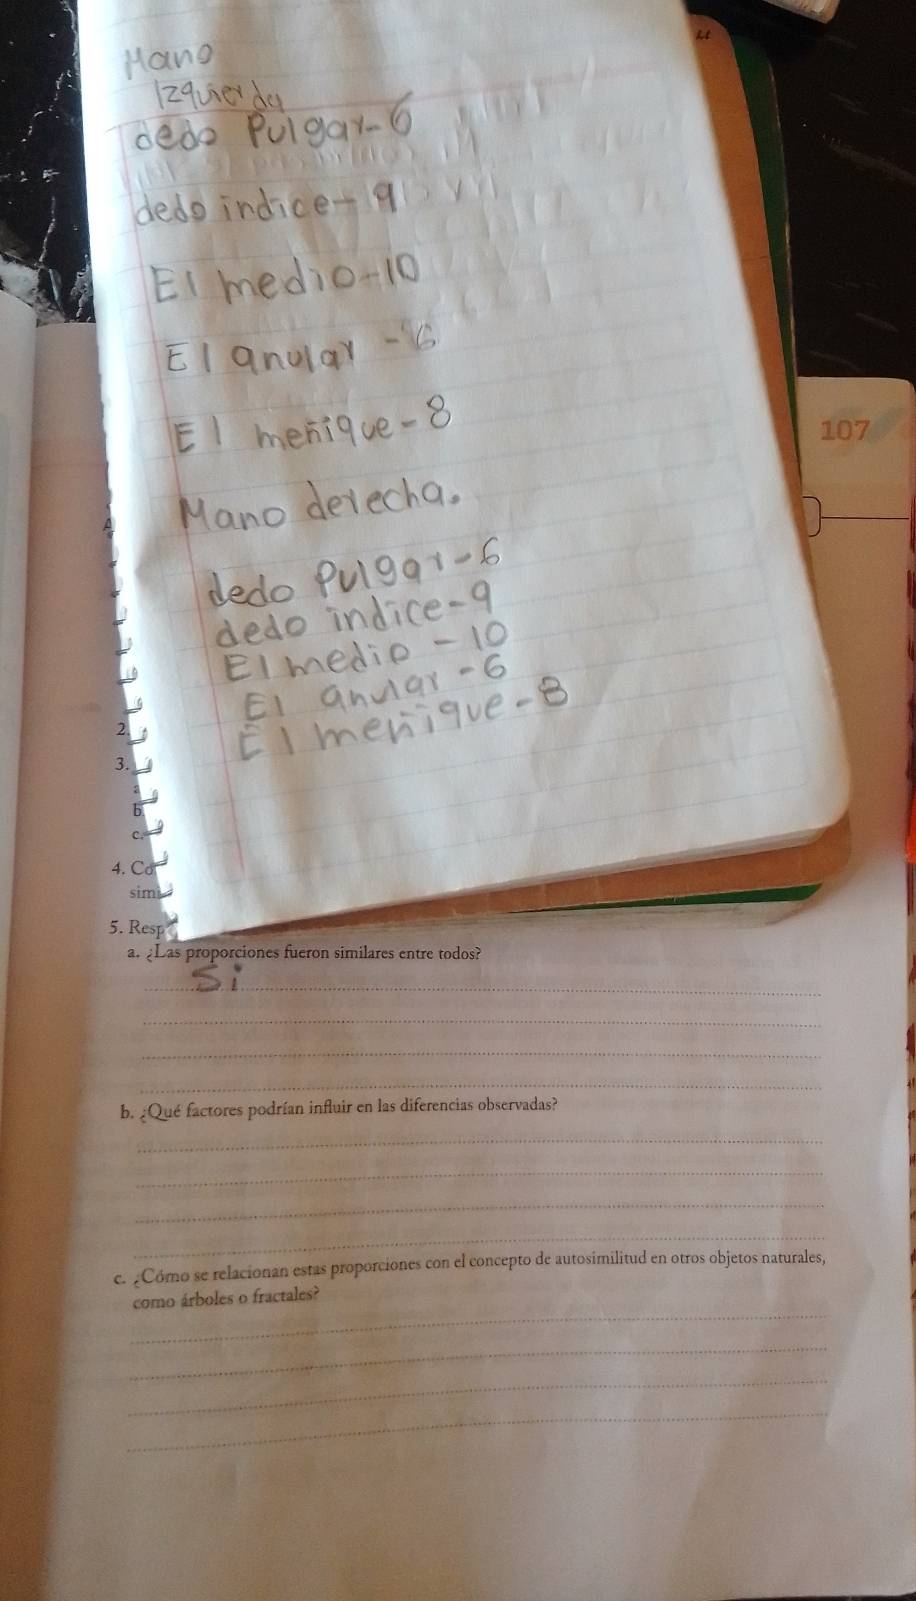 Mano
Izquierda
dedo Pulgar-6
dedo indice-9
El medio-10
El anular -6
El meñique-8
Mano derecha.
dedo Pulgar-6
dedo indice-9
El medio-10
El anular-6
El meñique-8
107
2.
3.
b.
c.
4. Co
simi
5. Resp
a. ¿Las proporciones fueron similares entre todos?
Si
b. ¿Qué factores podrían influir en las diferencias observadas?
c. ¿Cómo se relacionan estas proporciones con el concepto de autosimilitud en otros objetos naturales,
como árboles o fractales?